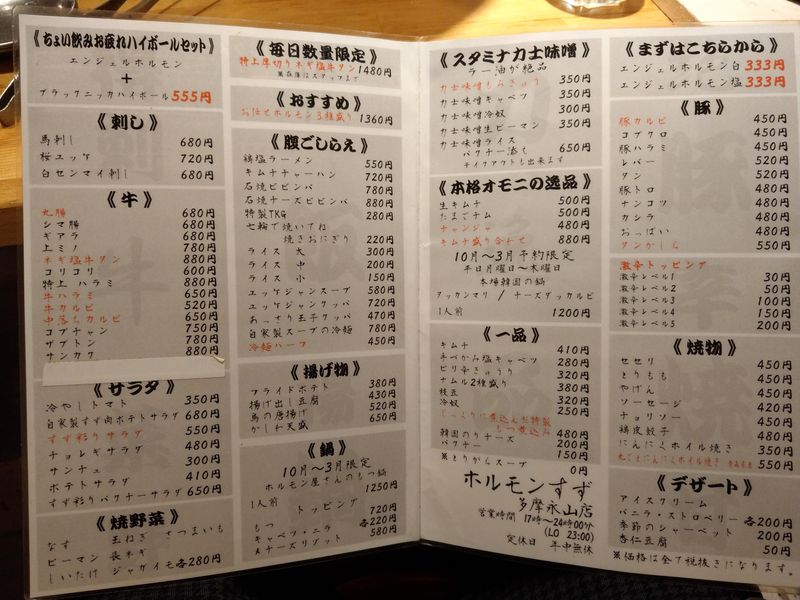 《ちょい飲みお疲れハイボールセット》
エンジェルホルモン
+
ブラックニッカハイボール 555円
《刺し》
馬刺し 680円
桜ユッケ 720円
白センマイ刺し 680円
《牛》
丸腸 680円
シマ腸 680円
ギアラ 680円
上ミノ 780円
ネギ塩牛タン 880円
コリコリ 600円
特上ハラミ 880円
牛ハラミ 650円
牛カルビ 520円
中落ちカルビ 650円
コプチャン 750円
ザブトン 780円
サンカク 880円
《サラダ》
冷やしトマト 350円
自家製すず肉ポテトサラダ 680円
すず彩りサラダ 550円
チョレギサラダ 480円
サンチュ 300円
ポテトサラダ 410円
すず彩りバクナーサラダ 650円
《焼野菜》
なす 玉ねぎ さつまいも
ピーマン 長ネギ
しいたけ ジャガイモ 各280円
《毎日数量限定》
特上厚切りネギ塩牛タン 1480円
※在庫はスタッフまで
《おすすめ》
お任せホルモン3種盛り 1360円
《腹ごしらえ》
鶏塩ラーメン 550円
キムチチャーハン 720円
石焼ビビンバ 780円
石焼チーズビビンバ 880円
特製TKG 280円
七輪で焼いてね
焼きおにぎり 220円
ライス 大 300円
ライス 中 200円
ライス 小 150円
ユッケジャンスープ 580円
ユッケジャンクッパ 720円
あっさり玉子クッパ 470円
自家製スープの冷麺 780円
冷麺ハーフ 450円
《揚げ物》
フライドポテト 380円
揚げ出し豆腐 430円
鳥の唐揚げ 520円
かしわ天盛 650円
《鍋》
10月〜3月限定
ホルモン屋さんのもつ鍋
1人前 1250円
トッピング
もつ 720円
キャベツ・ニラ 各220円
〆チーズリゾット 580円
《スタミナ力士味噌》
ラー油が絶品
力士味噌もみきゅう 350円
力士味噌キャベツ 350円
力士味噌冷奴 300円
力士味噌生ピーマン 350円
力士味噌ライス
バクチー添え 650円
テイクアウトも出来ます
《本格オモニの逸品》
生キムチ 500円
たまごナム 500円
チャンジャ 480円
キムチ盛り合わせ 880円
10月〜3月予約限定
平日月曜日〜木曜日
本場韓国の鍋
タッカンマリ / チーズダッカルビ
1人前 1200円
《一品》
キムチ 410円
手づかみ塩キャベツ 280円
ピリ辛きゅうり 320円
ナムル2種盛り 380円
枝豆 320円
冷奴 250円
じっくりに煮込んだ特製
もつ煮込み 480円
韓国のりチーズ 200円
バクチー 150円
鶏とりがらスープ 0円
ホルモンすず
多摩永山店
営業時間 17時〜24時00分
(LO 23:00)
定休日 年中無休
《まずはこちらから》
エンジェルホルモン白 333円
エンジェルホルモン塩 333円
《豚》
豚カルビ 450円
コブクロ 450円
豚ハラミ 450円
レバー 520円
タン 520円
豚トロ 480円
ナンコツ 480円
カシラ 480円
おっぱい 480円
タンかしら 550円
激辛トッピング
激辛レベル1 30円
激辛レベル2 50円
激辛レベル3 100円
激辛レベル4 150円
激辛レベル5 200円
《焼物》
セセリ 450円
とりもも 450円
やげん 450円
ソーセージ 420円
チョリソー 450円
鶏皮餃子 480円
にんにくホイル焼き 350円
丸ごとにんにくホイル焼き 550円
《デザート》
アイスクリーム
バニラ・ストロベリー 各200円
季節のシャーベット 200円
杏仁豆腐 50円
※価格は全て税抜きになります。